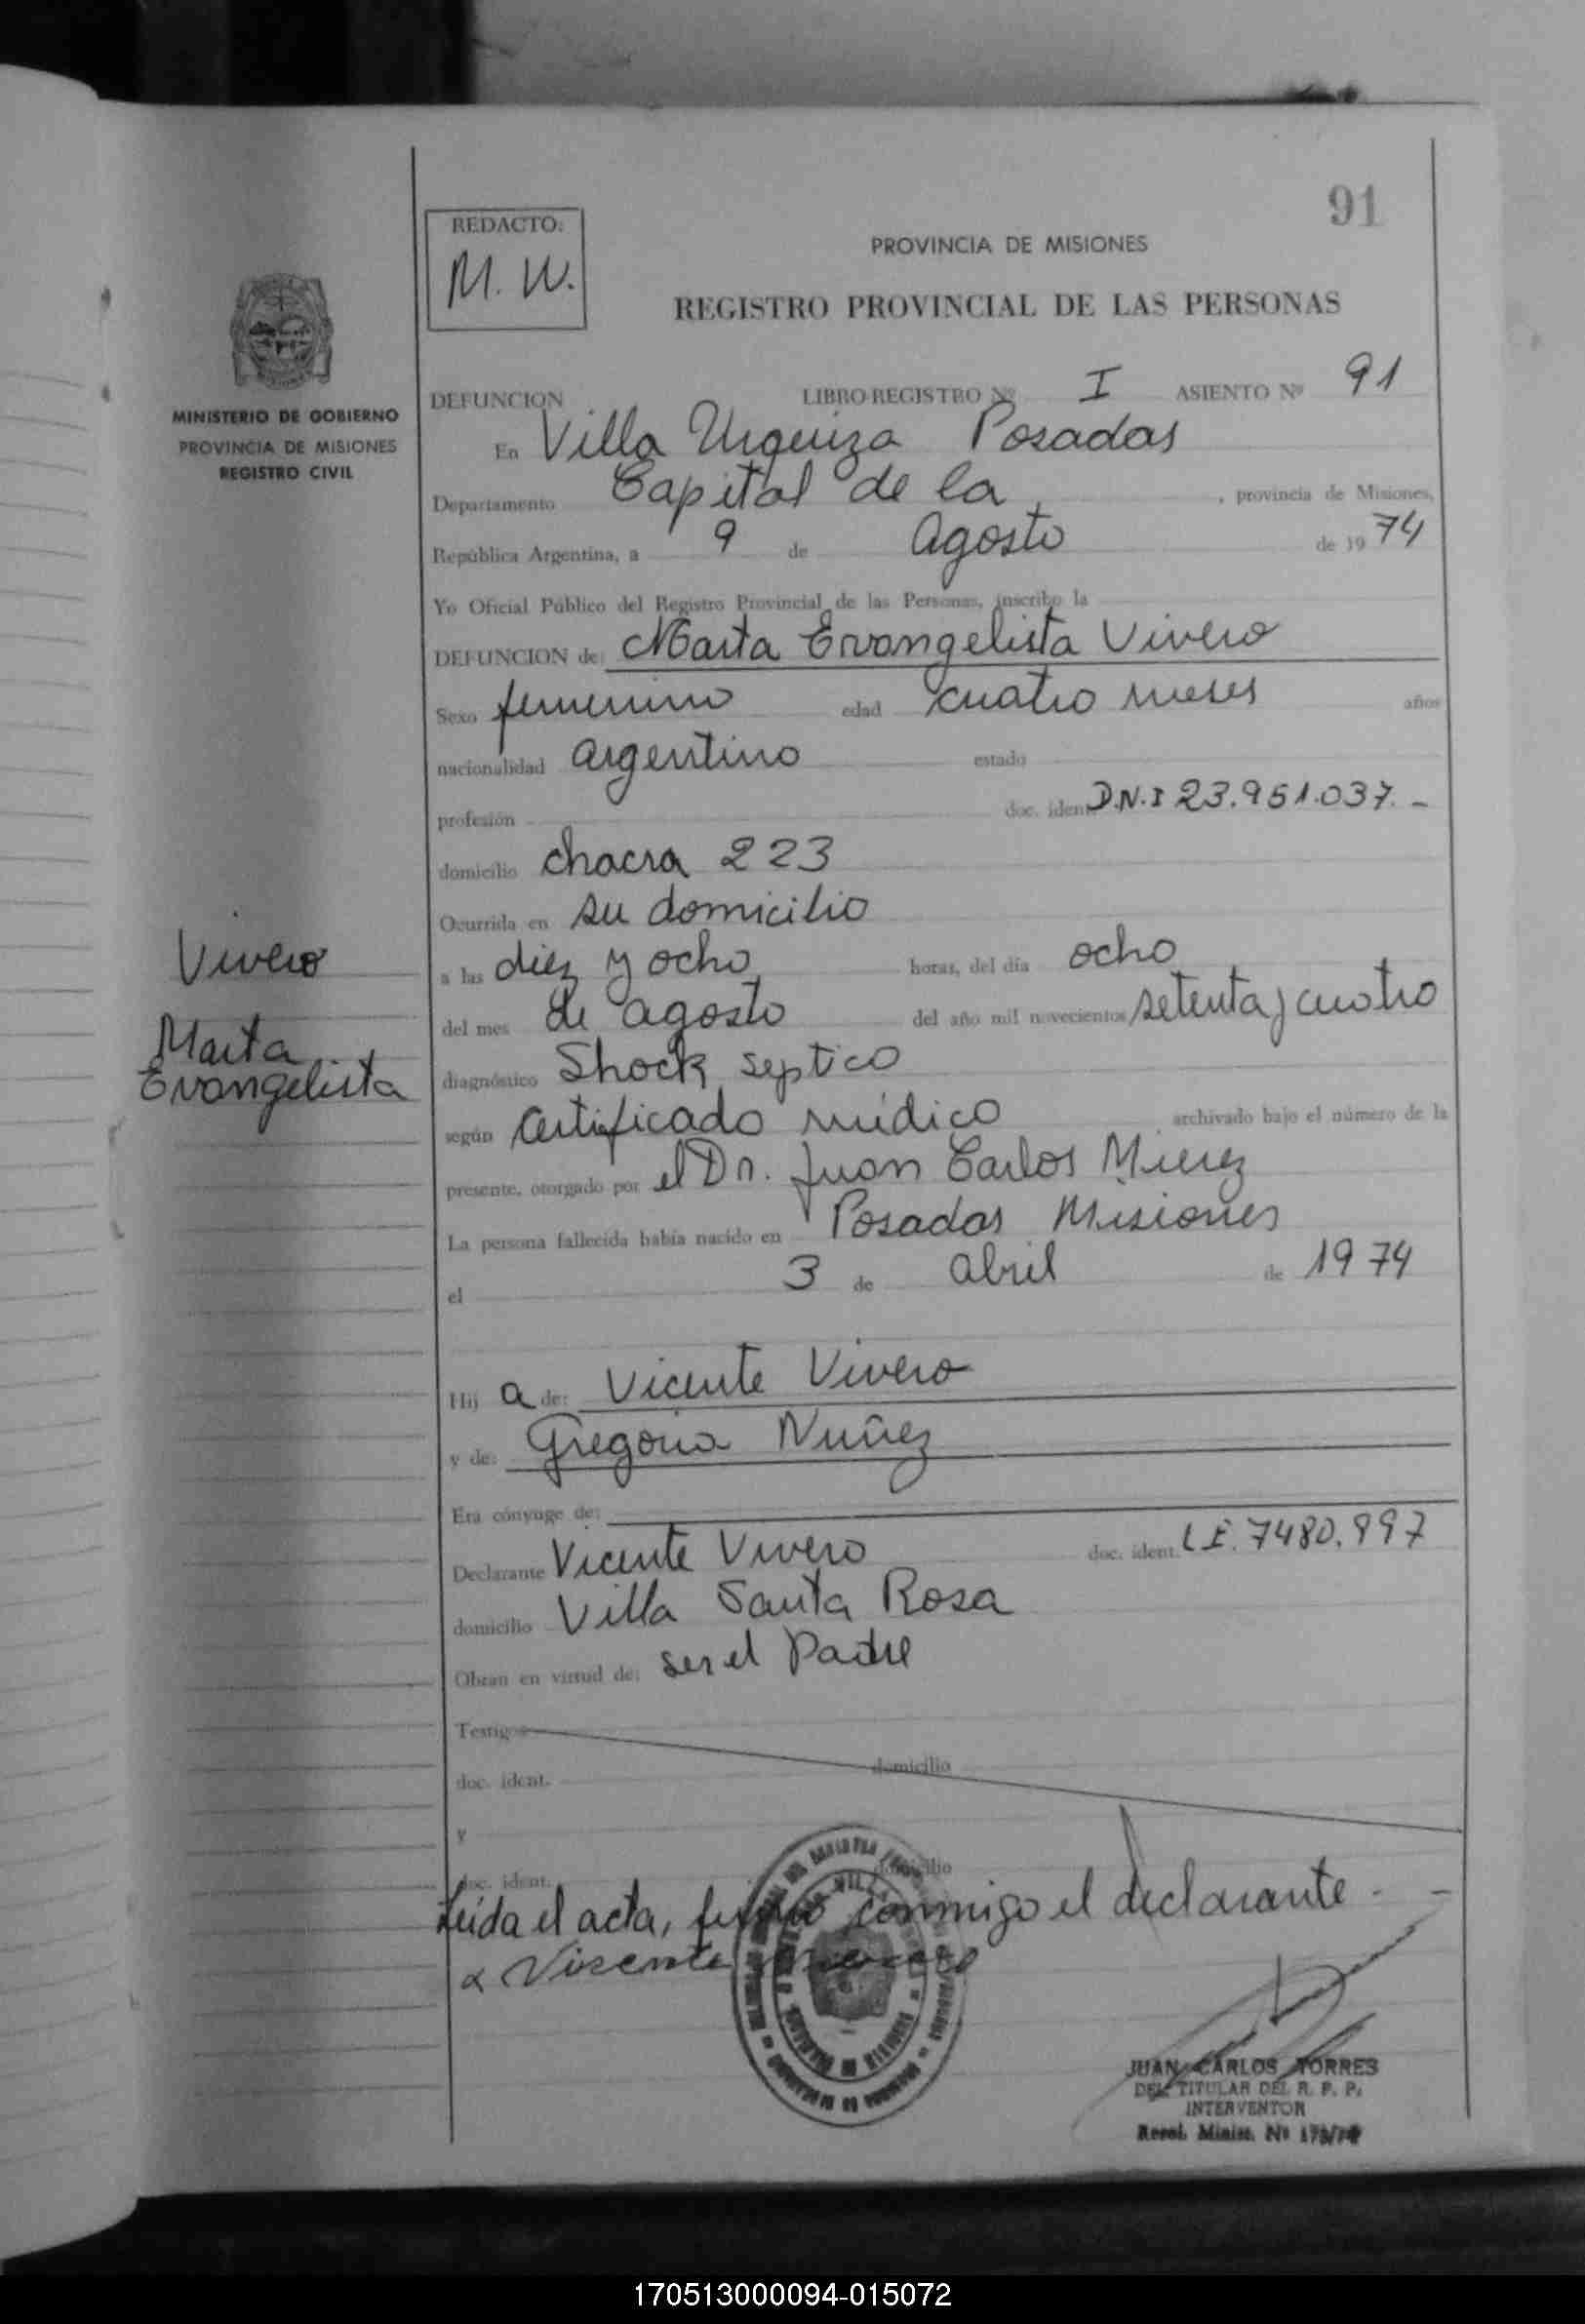 91
REDACTO:
M. W.
PROVINCIA DE MISIONES
REGISTRO PROVINCIAL DE LAS PERSONAS
MINISTERIO DE GOBIERNO
PROVINCIA DE MISIONES
REGISTRO CIVIL
DEFUNCION LIBRO-REGISTRO Nº I ASIENTO Nº 91
En Villa Urquiza Posadas
Departamento Capital de la , provincia de Misiones,
República Argentina, a 9 de Agosto de 1974
Yo Oficial Público del Registro Provincial de las Personas, inscribo la
DEFUNCION de: Marta Evangelista Vivero
Sexo femenino edad cuatro meses años
nacionalidad argentino estado
profesión doc. ident. D.N.I 23.951.037.-
domicilio chacra 223
Ocurrida en su domicilio
a las diez y ocho horas, del día ocho
del mes de agosto del año mil novecientos setenta y cuatro
diagnóstico Shock septico
según certificado médico archivado bajo el número de la
presente, otorgado por el Dr. Juan Carlos
La persona fallecida había nacido en Posadas Misiones
el 3 de abril de 1974
Vivero
Marta
Evangelista
Hij a de: Vicente Vivero
y de: Gregoria Nuñez
Era cónyuge de:
Declarante Vicente Vivero doc. ident. L.E. 7480.997
domicilio Villa Santa Rosa
Obran en virtud de: ser el Padre
Testigos
doc. ident. domicilio
y
doc. ident. domicilio
Leida el acta, firma conmigo el declarante.-
JUAN CARLOS TORRES
DEL. TITULAR DEL R. P. P.
INTERVENTOR
Resol. Minist. Nº
170513000094-015072